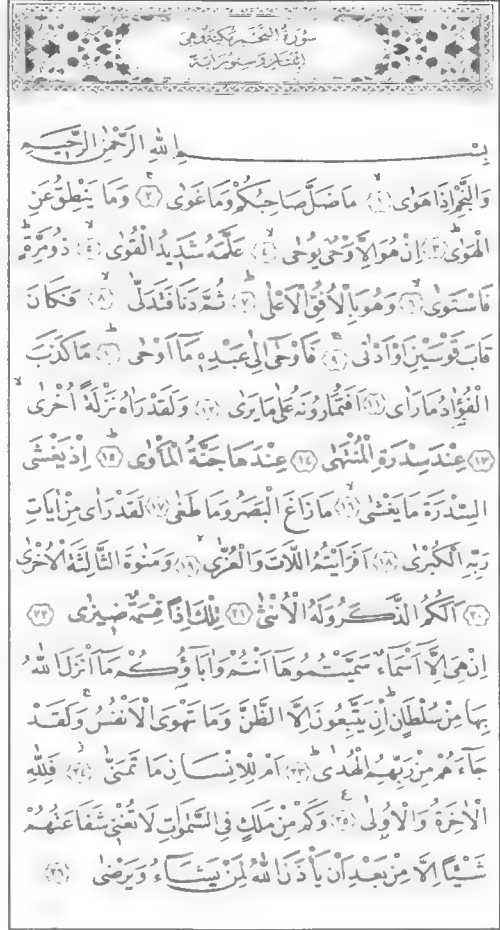 سُورَةُ النَّجْمِ مَكِّيَّةٌ وَهِيَ
اثْنَتَانِ وَسِتُّونَ آيَةً
بِسْمِ اللهِ الرَّحْمٰنِ الرَّحِيمِ
وَالنَّجْمِ اِذَا هَوٰى ﴿١﴾ مَا ضَلَّ صَاحِبُكُمْ وَمَا غَوٰى ﴿٢﴾ وَمَا يَنْطِقُ عَنِ
الْهَوٰى ﴿٣﴾ اِنْ هُوَ اِلَّا وَحْىٌ يُوحٰى ﴿٤﴾ عَلَّمَهُ شَدِيدُ الْقُوٰى ﴿٥﴾ ذُو مِرَّةٍ
فَاسْتَوٰى ﴿٦﴾ وَهُوَ بِالْاُفُقِ الْاَعْلٰى ﴿٧﴾ ثُمَّ دَنَا فَتَدَلّٰى ﴿٨﴾ فَكَانَ
قَابَ قَوْسَيْنِ اَوْ اَدْنٰى ﴿٩﴾ فَاَوْحٰى اِلٰى عَبْدِهِ مَا اَوْحٰى ﴿١٠﴾ مَا كَذَبَ
الْفُؤٰادُ مَا رَاٰى ﴿١١﴾ اَفَتُمَارُونَهُ عَلٰى مَا يَرٰى ﴿١٢﴾ وَلَقَدْ رَاٰهُ نَزْلَةً اُخْرٰى
﴿١٣﴾ عِنْدَ سِدْرَةِ الْمُنْتَهٰى ﴿١٤﴾ عِنْدَهَا جَنَّةُ الْمَاْوٰى ﴿١٥﴾ اِذْ يَغْشَى
السِّدْرَةَ مَا يَغْشٰى ﴿١٦﴾ مَا زَاغَ الْبَصَرُ وَمَا طَغٰى ﴿١٧﴾ لَقَدْ رَاٰى مِنْ اٰيَاتِ
رَبِّهِ الْكُبْرٰى ﴿١٨﴾ اَفَرَاَيْتُمُ اللَّاتَ وَالْعُزّٰى ﴿١٩﴾ وَمَنٰوةَ الثَّالِثَةَ الْاُخْرٰى
﴿٢٠﴾ اَلَكُمُ الذَّكَرُ وَلَهُ الْاُنْثٰى ﴿٢١﴾ تِلْكَ اِذًا قِسْمَةٌ ضِيزٰى ﴿٢٢﴾
اِنْ هِىَ اِلَّا اَسْمَاءٌ سَمَّيْتُمُوهَا اَنْتُمْ وَاٰبَاؤُكُمْ مَا اَنْزَلَ اللهُ
بِهَا مِنْ سُلْطَانٍ اِنْ يَتَّبِعُونَ اِلَّا الظَّنَّ وَمَا تَهْوَى الْاَنْفُسُ وَلَقَدْ
جَاءَهُمْ مِنْ رَبِّهِمُ الْهُدٰى ﴿٢٣﴾ اَمْ لِلْاِنْسَانِ مَا تَمَنّٰى ﴿٢٤﴾ فَلِلّٰهِ
الْاٰخِرَةُ وَالْاُولٰى ﴿٢٥﴾ وَكَمْ مِنْ مَلَكٍ فِى السَّمٰوَاتِ لَا تُغْنِى شَفَاعَتُهُمْ
شَيْئًا اِلَّا مِنْ بَعْدِ اَنْ يَاْذَنَ اللهُ لِمَنْ يَشَاءُ وَيَرْضٰى ﴿٢٦﴾